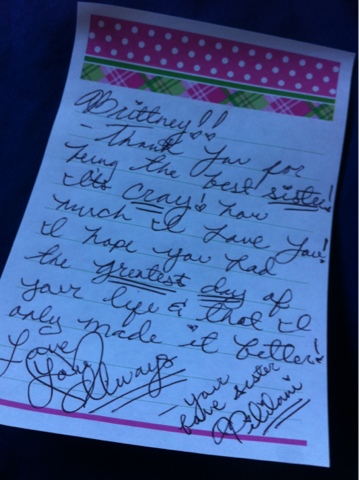 Brittney!!
- Thank you for
being the best sister!
It's cray! how
much I love you!
I hope you had
the greatest day of
your life & that I
only made it better!
Love
You Always
- your
fave sister